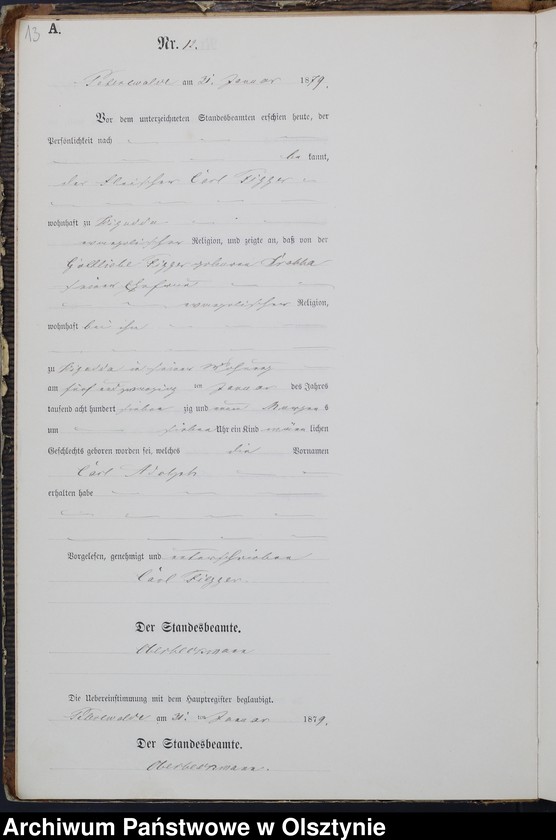 13
A.
Nr. 12.
am 31. Januar 1879.
Vor dem unterzeichneten Standesbeamten erschien heute, der
Persönlichkeit nach
be kannt,
der Fleischer Carl Figger
wohnhaft zu
evangelischer Religion, und zeigte an, daß von der
Gottliebe Figger geborene
seiner Ehefrau
evangelischer Religion,
wohnhaft bei ihm
zu in seiner Wohnung
am fünf und zwanzig ten Januar des Jahres
tausend acht hundert sieben zig und neun Morgens
um sieben Uhr ein Kind männ lichen
Geschlechts geboren worden sei, welches die Vornamen
Carl Adolph
erhalten habe
Vorgelesen, genehmigt und unterschrieben
Carl Figger.
Der Standesbeamte.
Die Uebereinstimmung mit dem Hauptregister beglaubigt.
am 31. ten Januar 1879.
Der Standesbeamte.
Archiwum Państwowe w Olsztynie